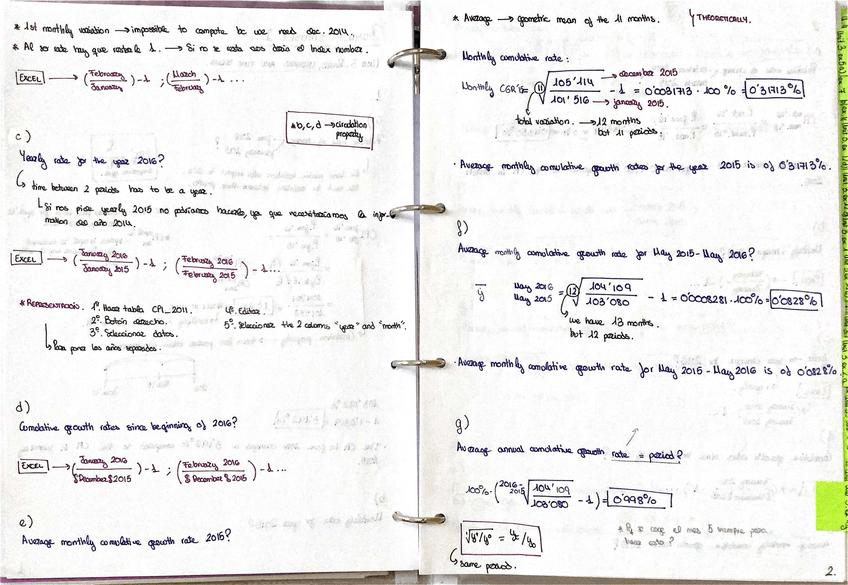 * 1st monthly variation → impossible to compute bc we need dec. 2014.
* Al ser rate hay que restarle 1. → Si no se resta nos daría el index number.
EXCEL → (February/January) - 1 ; (March/February) - 1 ...
* b, c, d → circulation property
c)
Yearly rate for the year 2016?
↳ time between 2 periods has to be a year.
↳ Si nos pide yearly 2015 no podríamos hacerlo, ya que necesitaríamos la infor-
mation del año 2014.
EXCEL → (January 2016/January 2015) - 1 ; (February 2016/February 2015) - 1 ...
* REPRESENTACIÓ. 1º. Hacer tabla CPI_2011. 4º. Editar.
2º. Botón derecho. 5º. Seleccionar the 2 columns "year" and "month".
3º. Seleccionar datos.
↳ Para poner los años separados.
d)
Comulative growth rates since beginning of 2016?
EXCEL → (January 2016/$December$2015) - 1 ; (February 2016/$December$2015) - 1 ...
e)
Average monthly comulative growth rate 2015?
* Average → geometric mean of the 11 months. THEORETICALLY.
Monthly comulative rate:
Monthly CGR'15 = 11√(105'114/101'516) - 1 = 0'0031713 · 100% = 0'31713%
→ december 2015
→ january 2015.
total variation. → 12 months
but 11 periods.
· Average monthly comulative growth rates for the year 2015 is of 0'31713%.
f)
Average monthly comulative growth rate for May 2015-May 2016?
ȳ May 2016 May 2015 = 12√(104'109/103'080) - 1 = 0'0008281·100% = 0'0828%
we have 13 months.
but 12 periods.
· Average monthly comulative growth rate for May 2015-May 2016 is of 0'0828%
g)
Average annual comulative growth rate = period?
100%·(2016-2015√(104'109/103'080) - 1) = 0'998%
↳ same period.
2.